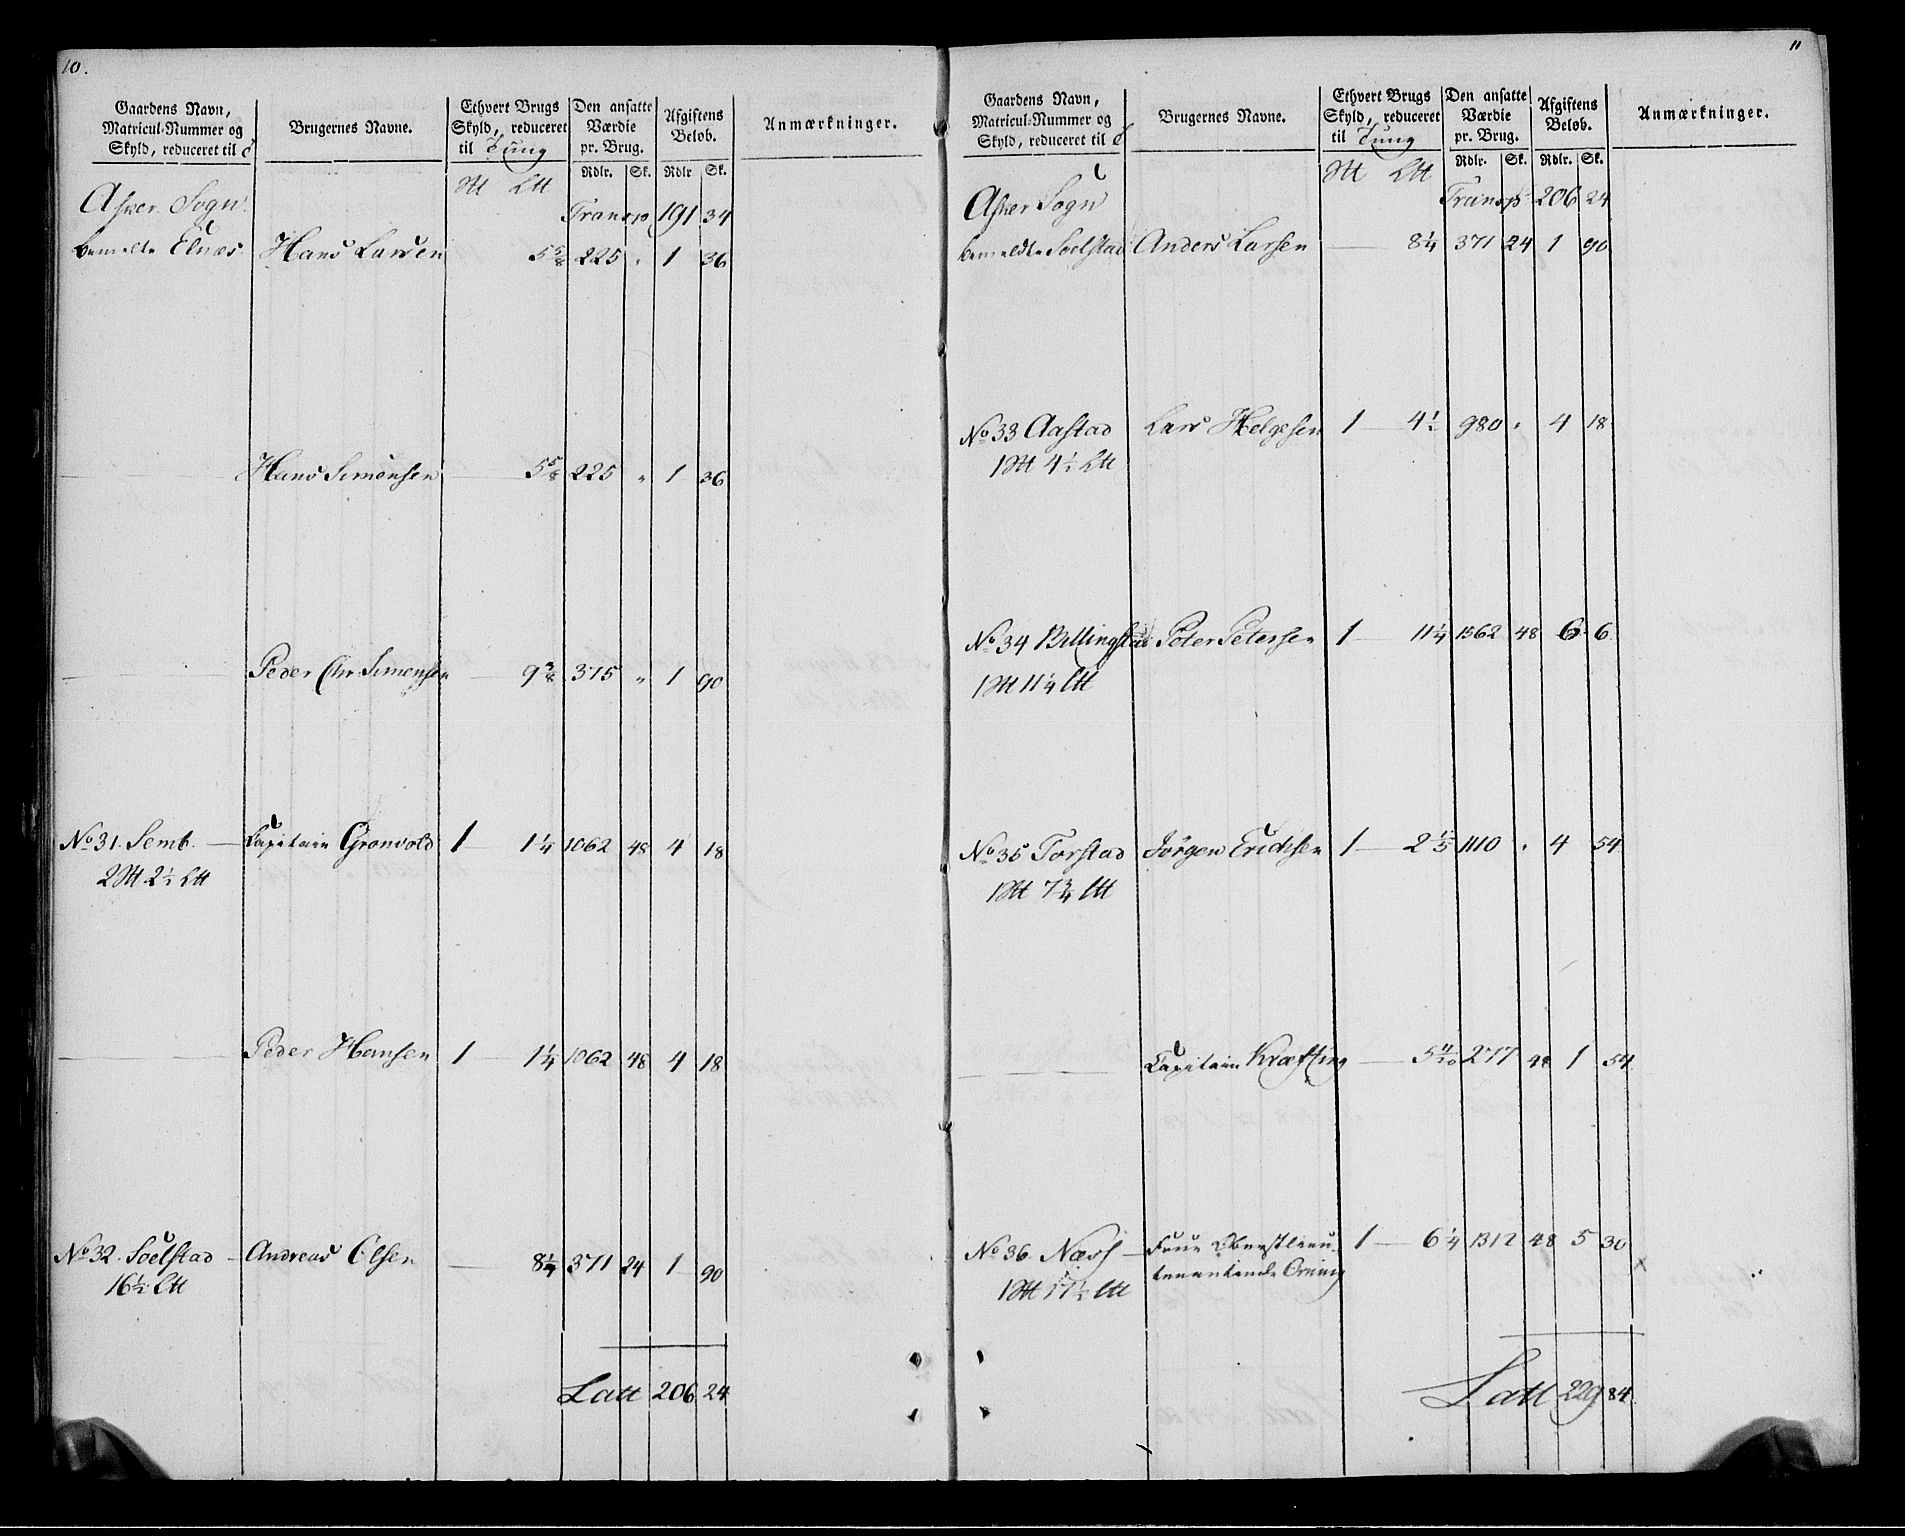 10.
Gaardens Navn, Matricul-Nummer og Skyld, reduceret til | Brugernes Navne. | Ethvert Brugs Skyld, reduceret til Tung | Den ansatte Værdie pr. Brug. | Afgiftens Beløb. | Anmærkninger.
Rdlr. Sk. Rdlr Sk.
Asker Sogn Transp 191 34
bemelte Elnæs Hans Larsen 5 5/8 225 " 1 36
Hans Simensen 5 5/8 225 " 1 36
Peder Chr Simensen 9 3/8 375 " 1 90
No 31. Semb. Capitain Gronvold 1 1 1/4 1062 48 4 18
2 M 2 1/2 Ltt
Peder Hansen 1 1 1/4 1062 48 4 18
No 32. Soelstad Andreas Olsen 8 1/4 371 24 1 90
16 1/2 Ltt
Latt 206 24
11
Gaardens Navn, Matricul-Nummer og Skyld, reduceret til | Brugernes Navne. | Ethvert Brugs Skyld, reduceret til Tung | Den ansatte Værdie pr. Brug. | Afgiftens Beløb. | Anmærkninger.
Rdlr. Sk. Rdlr. Sk.
Asker Sogn Transp 206 24
bemeldte Soelstad Anders Larsen 8 1/4 371 24 1 90
No 33 Aastad Lars Helgesen 1 4 1/2 980 " 4 18
1 M 4 1/2 Ltt
No 34 Billingstad Peter Petersen 1 11 1/4 1562 48 6 6
1 M 11 1/4 Ltt
No 35 Torstad Jörgen Erichsen 1 2 1/3 1110 " 4 54
1 M 7 3/4 Ltt
Capitain Kræfting 5 4/10 277 48 1 54
No 36. Næss Frue Oberstlieu-
tenantinde Orning 1 6 1/4 1312 48 5 30
1 M 17 1/2 Ltt
Latt 229 84